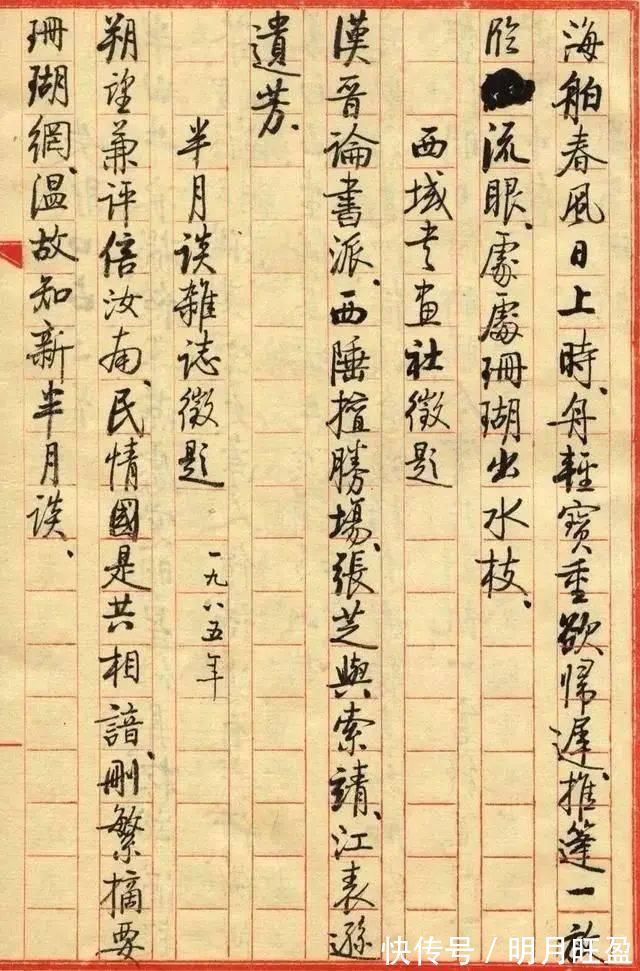 海舶春風日上時、舟輕寶重欲歸遲、推篷一放
臨流眼、處處珊瑚出水枝、
西域書画社徵題
漢晉論書派、西陲擅勝場、張芝與索靖、江表遜
遺芳、
半月談雜誌徵題 一九八五年
朔望兼評倍汝南、民情國是共相諳、刪繁摘要
珊瑚網、溫故知新半月談、
快传号／明月旺盈